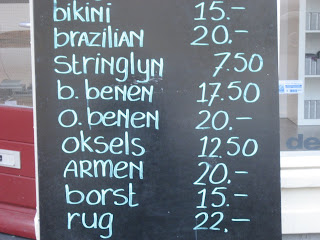 bikini 15.-
brazilian 20.-
stringlyn 7.50
b. benen 17.50
o. benen 20.-
oksels 12.50
armen 20.-
borst 15.-
rug 22.-
de